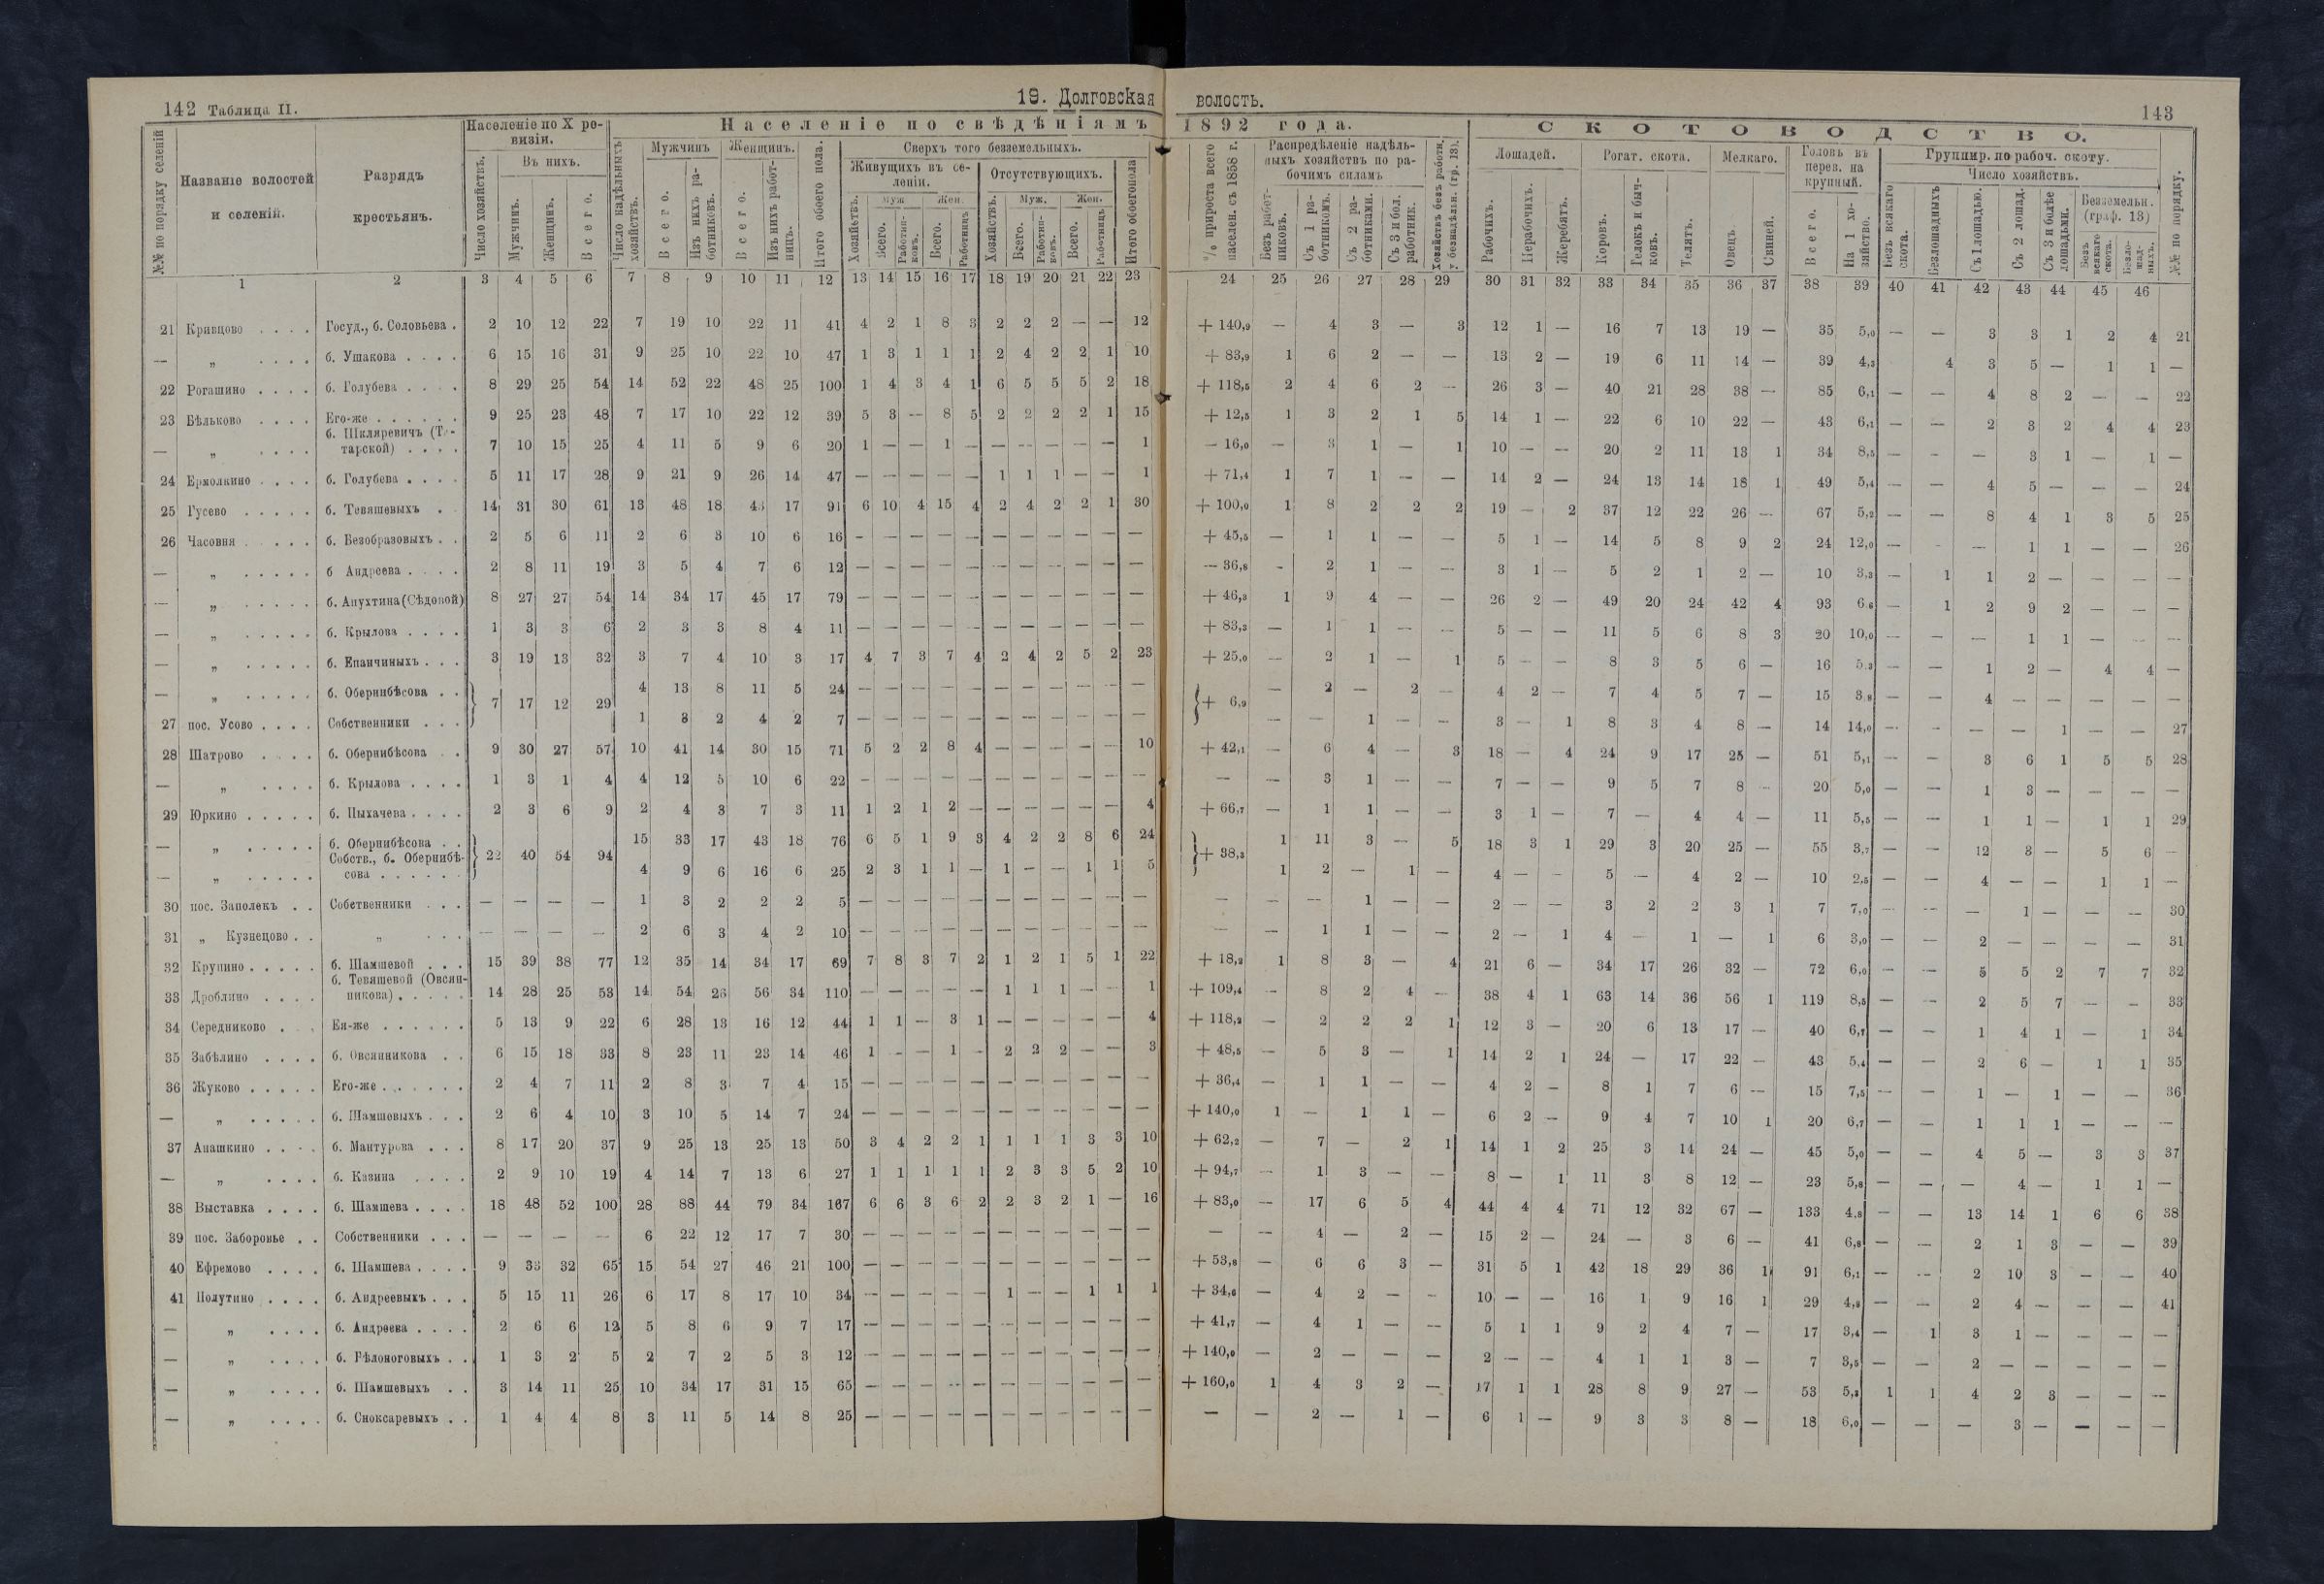 142 Таблица II.
19. Долговская
волость.
143
№№ по порядку селеній
Названіе волостей и селеній.
Разрядъ крестьянъ.
Населеніе по X ревизіи.
Число хозяйствъ.
Въ нихъ.
Мужчинъ.
Женщинъ.
Всего.
Населеніе по свѣдѣніямъ
1892 года.
Число надѣльныхъ хозяйствъ.
Мужчинъ
Всего.
Изъ нихъ работниковъ.
Женщинъ.
Всего.
Изъ нихъ работницъ.
Итого обоего пола.
Сверхъ того безземельныхъ.
Живущихъ въ селеніи.
Отсутствующихъ.
Хозяйствъ.
Муж.
Жен.
Всего.
Работниковъ.
Всего.
Работницъ
Хозяйствъ.
Муж.
Жен.
Всего.
Работниковъ.
Всего.
Работницъ
Итого обоего пола
% прироста всего населен. съ 1858 г.
Распредѣленіе надѣльныхъ хозяйствъ по рабочимъ силамъ
Безъ работниковъ.
Съ 1 работникомъ.
Съ 2 работниками.
Съ 3 и бол. работник.
Хозяйствъ безъ работн. у безнадѣльн. (гр. 13).
СКОТОВОДСТВО.
Лошадей.
Рогат. скота.
Мелкаго.
Головъ въ перев. на крупный.
Группир. по рабоч. скоту.
Число хозяйствъ.
Рабочихъ.
Нерабочихъ.
Жеребятъ.
Коровъ.
Телокъ и бычковъ.
Телятъ.
Овецъ
Свиней.
Всего.
На 1 хозяйство.
Безъ всякаго скота.
Безлошадныхъ
Съ 1 лошадью.
Съ 2 лошад.
Съ 3 и болѣе лошадьми.
Безземельн. (граф. 13)
Безъ всякаго скота.
Безлошадныхъ.
№№ по порядку.
1 2 3 4 5 6 7 8 9 10 11 12 13 14 15 16 17 18 19 20 21 22 23 24 25 26 27 28 29 30 31 32 33 34 35 36 37 38 39 40 41 42 43 44 45 46
21 Кривцово . . . . Госуд., б. Соловьева . 2 10 12 22 7 19 10 22 11 41 4 2 1 8 3 2 2 2 — — 12 + 140,9 — 4 3 — 3 12 1 — 16 7 13 19 — 35 5,0 — — 3 3 1 2 4 21
— „ . . . . б. Ушакова . . . . 6 15 16 31 9 25 10 22 10 47 1 3 1 1 1 2 4 2 2 1 10 + 83,9 1 6 2 — — 13 2 — 19 6 11 14 — 39 4,3 4 3 5 — 1 1 —
22 Рогашино . . . . б. Голубева . . . . 8 29 25 54 14 52 22 48 25 100 1 4 3 4 1 6 5 5 5 2 18 + 118,5 2 4 6 2 — 26 3 — 40 21 28 38 — 85 6,1 — — 4 8 2 — — 22
23 Бѣльково . . . . Его-же . . . . . . 9 25 23 48 7 17 10 22 12 39 5 3 — 8 5 2 2 2 2 1 15 + 12,5 1 3 2 1 5 14 1 — 22 6 10 22 — 43 6,1 — — 2 3 2 4 4 23
— „ . . . . б. Шкляревичъ (Татарской) . . . . 7 10 15 25 4 11 5 9 6 20 1 — — 1 — — — — — — 1 — 16,0 — 3 1 — 1 10 — — 20 2 11 13 1 34 8,5 — — — 3 1 — 1 —
24 Ермолкино . . . . б. Голубева . . . . 5 11 17 28 9 21 9 26 14 47 — — — — — 1 1 1 — — 1 + 71,4 1 7 1 — — 14 2 — 24 13 14 18 1 49 5,4 — — 4 5 — — — 24
25 Гусево . . . . . б. Тевяшевыхъ . 14 31 30 61 13 48 18 43 17 91 6 10 4 15 4 2 4 2 2 1 30 + 100,0 1 8 2 2 2 19 — 2 37 12 22 26 — 67 5,2 — — 8 4 1 3 5 25
26 Часовня . . . . б. Безобразовыхъ . . 2 5 6 11 2 6 3 10 6 16 — — — — — — — — — — — + 45,5 — 1 1 — — 5 1 — 14 5 8 9 2 24 12,0 — - — 1 1 — — 26
— „ . . . . . б Андреева . . . . 2 8 11 19 3 5 4 7 6 12 — — — — — — — — — — — — 36,8 - 2 1 — — 3 1 — 5 2 1 2 — 10 3,3 — 1 1 2 — — — —
— „ . . . . . б. Апухтина (Сѣдовой) 8 27 27 54 14 34 17 45 17 79 — — — — — — — — — — — + 46,3 1 9 4 — — 26 2 — 49 20 24 42 4 93 6,6 — 1 2 9 2 — — —
— „ . . . . . б. Крылова . . . . 1 3 3 6 2 3 3 8 4 11 — — — — — — — — — — — + 83,3 — 1 1 — — 5 — — 11 5 6 8 3 20 10,0 — — — 1 1 — — —
— „ . . . . . б. Епанчиныхъ . . . 3 19 13 32 3 7 4 10 3 17 4 7 3 7 4 2 4 2 5 2 23 + 25,0 — 2 1 — 1 5 — — 8 3 5 6 — 16 5,3 — — 1 2 — 4 4 —
— „ . . . . . б. Обернибѣсова . . } 7 17 12 29 4 13 8 11 5 24 — — — — — — — — — — — }+ 6,9 — 2 — 2 — 4 2 — 7 4 5 7 — 15 3,8 — — 4 — — — — —
27 пос. Усово . . . . Собственники . . . 1 3 2 4 2 7 — — — — — — — — — — — — — 1 — — 3 — 1 8 3 4 8 — 14 14,0 — — — — 1 — — 27
28 Шатрово . . . . б. Обернибѣсова . . 9 30 27 57 10 41 14 30 15 71 5 2 2 8 4 — — — — — 10 + 42,1 — 6 4 — 3 18 — 4 24 9 17 25 — 51 5,1 — — 3 6 1 5 5 28
— „ . . . . б. Крылова . . . . 1 3 1 4 4 12 5 10 6 22 — — — — — — — — — — — — — 3 1 — — 7 — — 9 5 7 8 — 20 5,0 — — 1 3 — — — —
29 Юркино . . . . . б. Пыхачева . . . . 2 3 6 9 2 4 3 7 3 11 1 2 1 2 — — — — — — 4 + 66,7 — 1 1 — — 3 1 — 7 — 4 4 — 11 5,5 — — 1 1 — 1 1 29
— „ . . . . . б. Обернибѣсова . . } 22 40 54 94 15 33 17 43 18 76 6 5 1 9 3 4 2 2 8 6 24 }+ 38,3 1 11 3 — 5 18 3 1 29 3 20 25 — 55 3,7 — — 12 3 — 5 6 —
— „ . . . . . Собств., б. Обернибѣсова . . . . . . 4 9 6 16 6 25 2 3 1 1 — 1 — — 1 1 5 1 2 — 1 — 4 — — 5 — 4 2 — 10 2,5 — — 4 — — 1 1 —
30 пос. Заполекъ . . Собственники . . . — — — — 1 3 2 2 2 5 — — — — — — — — — — — — — — 1 — — 2 — — 3 2 2 3 1 7 7,0 — — — 1 — — — 30
31 „ Кузнецово . . „ . . . — — — — 2 6 3 4 2 10 — — — — — — — — — — — — — 1 1 — — 2 — 1 4 — 1 — 1 6 3,0 — — 2 — — — — 31
32 Крупино . . . . . б. Шамшевой . . . 15 39 38 77 12 35 14 34 17 69 7 8 3 7 2 1 2 1 5 1 22 + 18,2 1 8 3 — 4 21 6 — 34 17 26 32 — 72 6,0 — — 5 5 2 7 7 32
33 Дроблино . . . . б. Тевяшевой (Овсянникова) . . . . . 14 28 25 53 14 54 26 56 34 110 — — — — — 1 1 1 — — 1 + 109,4 — 8 2 4 — 38 4 1 63 14 36 56 1 119 8,5 — — 2 5 7 — — 33
34 Середниково . . . Ея-же . . . . . . 5 13 9 22 6 28 13 16 12 44 1 1 — 3 1 — — — — — 4 + 118,2 — 2 2 2 1 12 3 — 20 6 13 17 — 40 6,7 — — 1 4 1 — 1 34
35 Забѣлино . . . . б. Овсянникова . . 6 15 18 33 8 23 11 23 14 46 1 - — 1 - 2 2 2 — — 3 + 48,5 — 5 3 — 1 14 2 1 24 — 17 22 — 43 5,4 — — 2 6 — 1 1 35
36 Жуково . . . . . Его-же . . . . . . 2 4 7 11 2 8 3 7 4 15 — — — — — — — — — — — + 36,4 — 1 1 — — 4 2 — 8 1 7 6 — 15 7,5 — — 1 — 1 — — 36
— „ . . . . . б. Шамшевыхъ . . . 2 6 4 10 3 10 5 14 7 24 — — — — — — — — — — — + 140,0 1 — 1 1 — 6 2 — 9 4 7 10 1 20 6,7 — — 1 1 1 — — —
37 Анашкино . . . . б. Мантурова . . . 8 17 20 37 9 25 13 25 13 50 3 4 2 2 1 1 1 1 3 3 10 + 62,2 — 7 — 2 1 14 1 2 25 3 14 24 — 45 5,0 — — 4 5 — 3 3 37
— „ . . . . б. Казина . . . . 2 9 10 19 4 14 7 13 6 27 1 1 1 1 1 2 3 3 5 2 10 + 94,7 — 1 3 — — 8 — 1 11 3 8 12 — 23 5,8 — — — 4 — 1 1 —
38 Выставка . . . . б. Шамшева . . . . 18 48 52 100 28 88 44 79 34 167 6 6 3 6 2 2 3 2 1 — 16 + 83,0 — 17 6 5 4 44 4 4 71 12 32 67 — 133 4,8 — — 13 14 1 6 6 38
39 пос. Заборовье . . Собственники . . . — — — — 6 22 12 17 7 30 — — — — — — — — — — — — — 4 — 2 — 15 2 — 24 — 3 6 — 41 6,8 — — 2 1 3 — — 39
40 Ефремово . . . . б. Шамшева . . . . 9 33 32 65 15 54 27 46 21 100 — — — — — — — — — — — + 53,8 — 6 6 3 — 31 5 1 42 18 29 36 1 91 6,1 — — 2 10 3 — — 40
41 Полутино . . . . б. Андреевыхъ . . . 5 15 11 26 6 17 8 17 10 34 — — — — — 1 — — 1 1 1 + 34,6 — 4 2 — - 10 — — 16 1 9 16 1 29 4,8 — — 2 4 — — — 41
— „ . . . . б. Андреева . . . . 2 6 6 12 5 8 6 9 7 17 — — — — — — — — — — — + 41,7 — 4 1 — — 5 1 1 9 2 4 7 — 17 3,4 — 1 3 1 — — — —
— „ . . . . б. Бѣлоноговыхъ . . 1 3 2 5 2 7 2 5 3 12 — — — — — — — — — — — + 140,0 — 2 — — — 2 — — 4 1 1 3 — 7 3,5 — — 2 — — — — —
— „ . . . . б. Шамшевыхъ . . 3 14 11 25 10 34 17 31 15 65 — — — — — — — — — — — + 160,0 1 4 3 2 — 17 1 1 28 8 9 27 — 53 5,3 1 1 4 2 3 — — —
— „ . . . . б. Сноксаревыхъ . . 1 4 4 8 3 11 5 14 8 25 — — — — — — — — — — — — — 2 — 1 — 6 1 — 9 3 3 8 — 18 6,0 — — — 3 — — — —